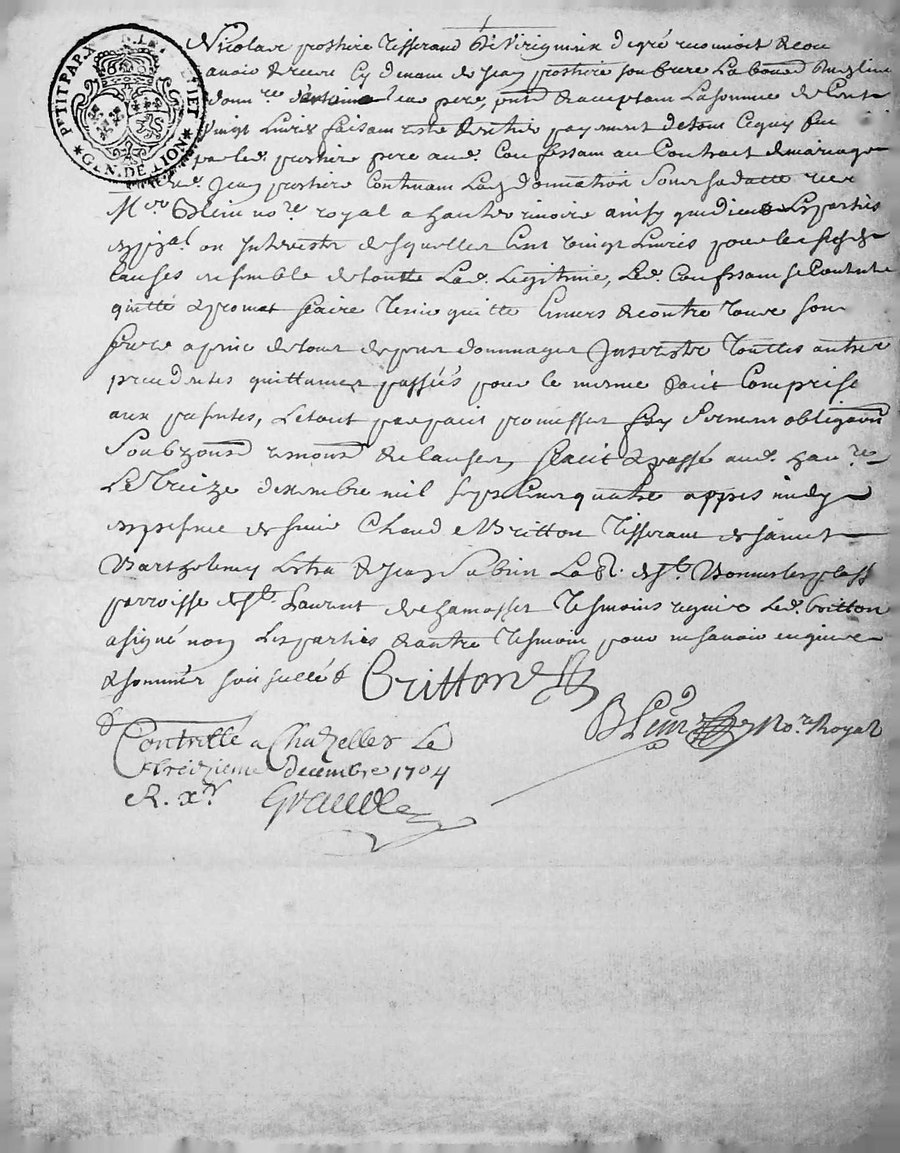 P'TIT PAP X D. LE F ET IET
* GEN. DE LION *
Nicolas poshire Tisserand de Virignieu de gré reconnoit
avoir receu cy devant de Jean poshire son frere La
donn.re père, pnt. & acceptant La somme de Cent
vingt Livres faisant reste & entier payement de tout ce qui fut
par led. poshire père aud. Confessant au Contract de mariage
dud. Jean poshire Contenant Lad. donnation Sous sa datte receu
M.e Blein no.re royal a hauterivoire ainsy que dient Les parties
en pi.al ou Interests desquelles Cent vingt Livres pour les susd.
Causes ensemble de toutte Lad. Legitime, Led. Confessant se Contente
quitte & promet faire Tenir quitte Envers & contre Tous son
frere a peine de tous depens dommages Interests Touttes autres
precedentes quittances passées pour le meme fait Comprises
aux presentes, Le tout par foit promesses Serment obligaõn
Soubzmõns renonõns & clauses, faict & passé aud. hau.re
Le Treize dexembre mil Sept Cent quatre appres midy
en presence de Chaud e Britton Tisserant de Sainct
Barthelemy Lestra & Jean
parroisse de S.t Laurent de Chamosset Tesmoins requis Led. Britton
a signé non Les parties & autre Tesmoin pour ne savoir enquis
& sommés soit sellé &
Britton
Blein No.re Royal
Controllé a Chazelles Le
treizieme decembre 1704
R. x s.